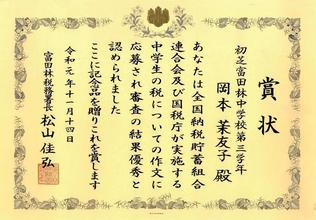 賞状
初芝富田林中学校第三学年
岡本茉友子殿
あなたは全国納税貯蓄組合
連合会及び国税庁が実施する
中学生の税についての作文に
応募され審査の結果優秀と
認められました
ここに記念品を贈りこれを賞します
令和元年十一月十四日
富田林税務署長 松山佳弘